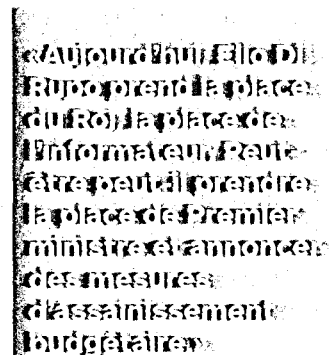 «Aujourd'hui, Elio Di
Rupo prend la place
du Roi, la place de
l'informateur. Peut-
être peut-il prendre
la place de Premier
ministre et annoncer
des mesures
d'assainissement
budgétaire.»